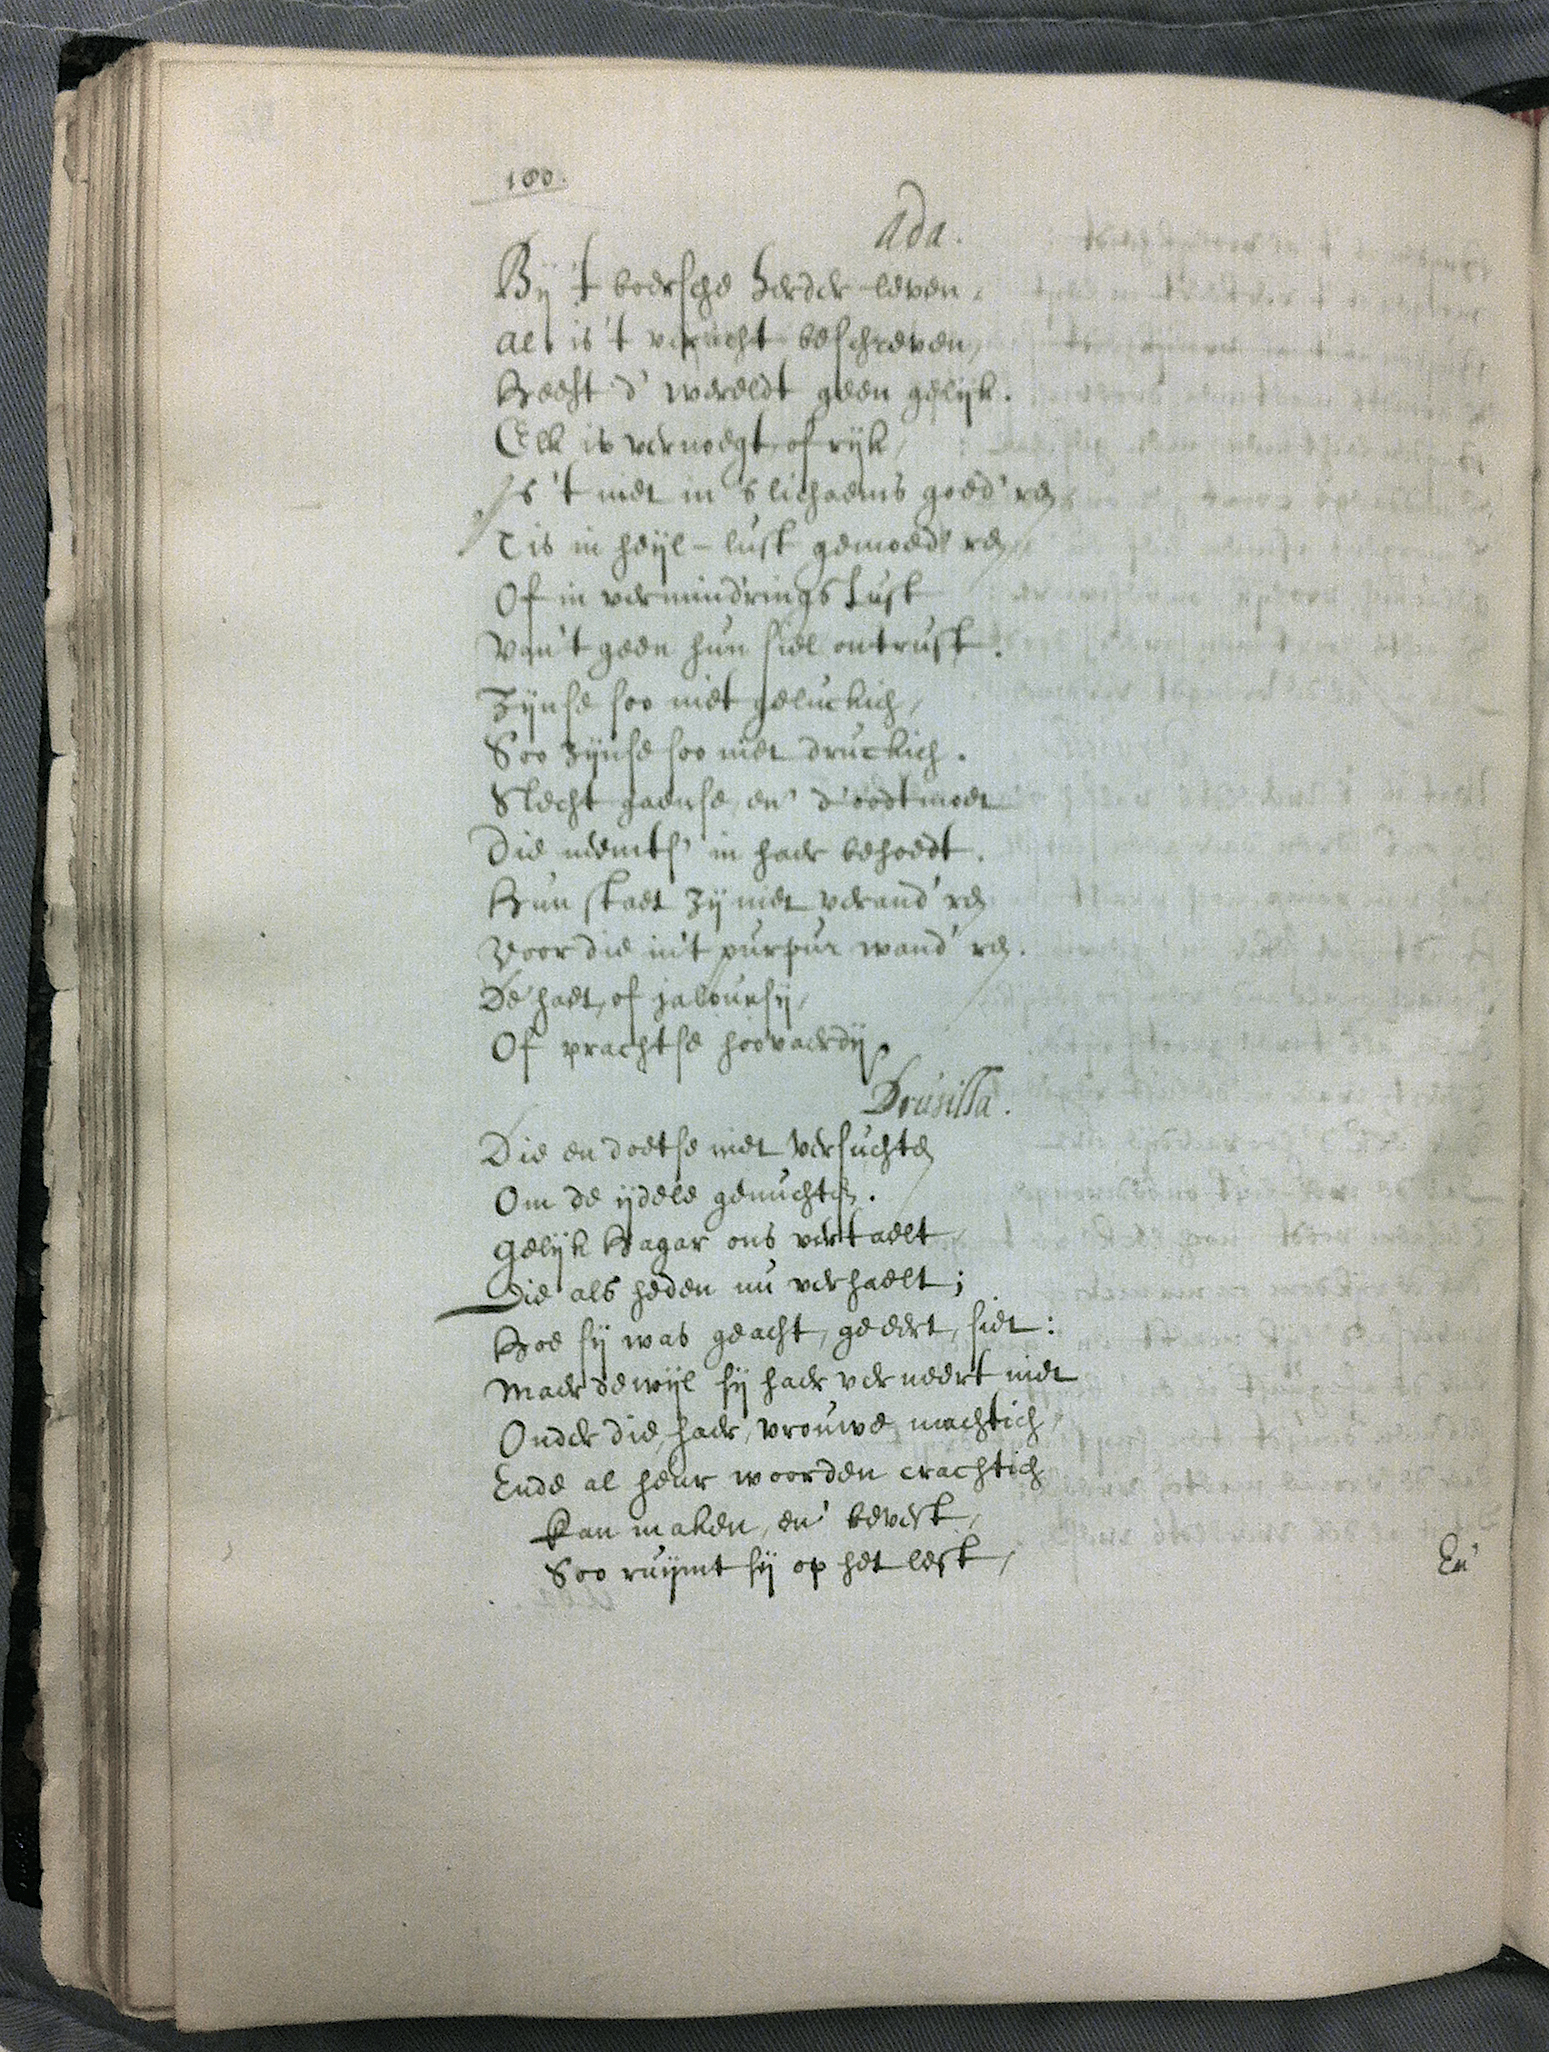 100.
Ada.
Bÿ 't boersche herder-leven,
Al is 't veracht beschreven,
Heeft d' wereldt geen gelÿk.
Elk is vernoegt, of rÿk,
Is 't niet in 's lichaems goed'ren
T is in heÿl-lust gemoed'ren
Of in vermind'rings lust
Van 't geen hun siel ontrust.
Zÿnse soo niet geluckich,
Soo zÿnse soo niet druckich.
Slecht gaense, en' d'oodtmoet
Die neemts' in haer behoedt.
Hun staet zÿ niet verand'ren
Voor die in't purpur wand'ren.
De haet, of jaloursÿ,
Of prachtse hoovaerdÿ
Drusilla.
Die en doetse niet versuchten
Om de ÿdele genuchten.
Gelÿk Hagar ons vertaelt,
Die als heden nu verhaelt;
Hoe sÿ was geacht, geeert, siet:
Maer dewÿl sÿ haer verneert niet
Onder die, haer, vrouwe machtich,
Ende al heur woorden crachtich
Kan maken, en' bevest,
Soo ruÿmt sÿ op het lest,
En'